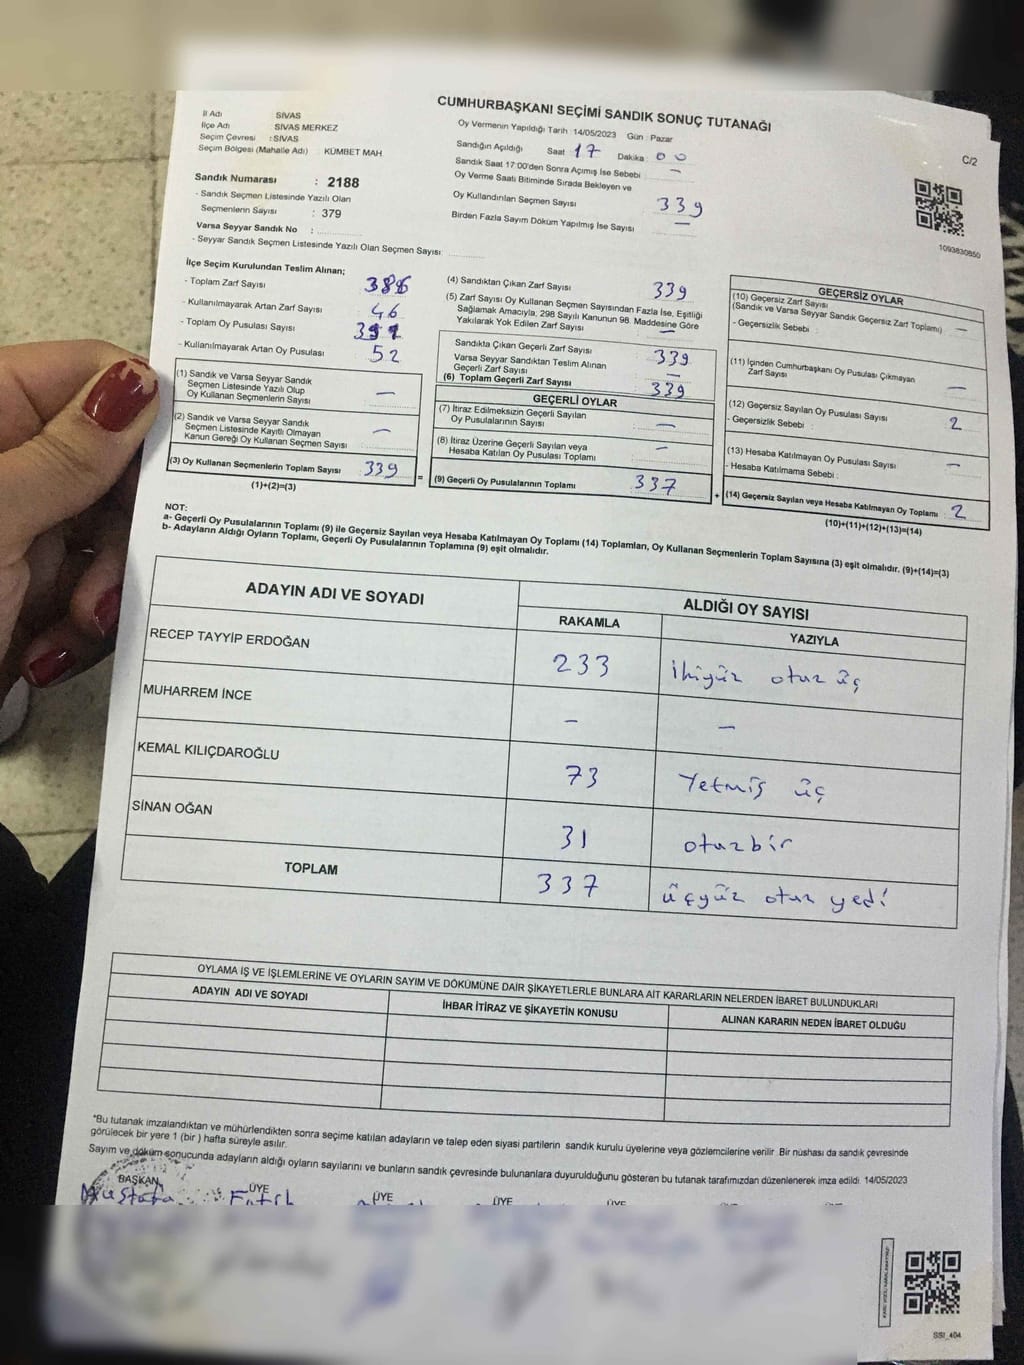 CUMHURBAŞKANI SEÇİMİ SANDIK SONUÇ TUTANAĞI
C/2
İl Adı SİVAS
İlçe Adı SİVAS MERKEZ
Seçim Çevresi : SİVAS
Seçim Bölgesi (Mahalle Adı) KÜMBET MAH.
Sandık Numarası : 2188
- Sandık Seçmen Listesinde Yazılı Olan
Seçmenlerin Sayısı : 379
Varsa Seyyar Sandık No :
- Seyyar Sandık Seçmen Listesinde Yazılı Olan Seçmen Sayısı:
Oy Vermenin Yapıldığı Tarih : 14/05/2023 Gün : Pazar
Sandığın Açıldığı Saat 17 Dakika : 00
Sandık Saat 17:00'den Sonra Açımış İse Sebebi —
Oy Verme Saati Bitiminde Sırada Bekleyen ve
Oy Kullandırılan Seçmen Sayısı 339
Birden Fazla Sayım Döküm Yapılmış İse Sayısı —
1093830850
İlçe Seçim Kurulundan Teslim Alınan;
- Toplam Zarf Sayısı
- Kullanılmayarak Artan Zarf Sayısı : 46
- Toplam Oy Pusulası Sayısı
- Kullanılmayarak Artan Oy Pusulası 52
(1) Sandık ve Varsa Seyyar Sandık
Seçmen Listesinde Yazılı Olup
Oy Kullanan Seçmenlerin Sayısı —
(2) Sandık ve Varsa Seyyar Sandık
Seçmen Listesinde Kayıtlı Olmayan
Kanun Gereği Oy Kullanan Seçmen Sayısı —
(3) Oy Kullanan Seçmenlerin Toplam Sayısı : 339
(1)+(2)=(3)
=
(4) Sandıktan Çıkan Zarf Sayısı 339
(5) Zarf Sayısı Oy Kullanan Seçmen Sayısından Fazla İse, Eşitliği
Sağlamak Amacıyla, 298 Sayılı Kanunun 98. Maddesine Göre
Yakılarak Yok Edilen Zarf Sayısı —
Sandıkta Çıkan Geçerli Zarf Sayısı 339
Varsa Seyyar Sandıktan Teslim Alınan
Geçerli Zarf Sayısı —
(6) Toplam Geçerli Zarf Sayısı 339
GEÇERLİ OYLAR
(7) İtiraz Edilmeksizin Geçerli Sayılan
Oy Pusulalarının Sayısı —
(8) İtiraz Üzerine Geçerli Sayılan veya
Hesaba Katılan Oy Pusulası Toplamı —
(9) Geçerli Oy Pusulalarının Toplamı 337
+
GEÇERSİZ OYLAR
(10) Geçersiz Zarf Sayısı
(Sandık ve Varsa Seyyar Sandık Geçersiz Zarf Toplamı) —
- Geçersizlik Sebebi :
(11) İçinden Cumhurbaşkanı Oy Pusulası Çıkmayan
Zarf Sayısı —
(12) Geçersiz Sayılan Oy Pusulası Sayısı 2
- Geçersizlik Sebebi :
(13) Hesaba Katılmayan Oy Pusulası Sayısı —
- Hesaba Katılmama Sebebi :
(14) Geçersiz Sayılan veya Hesaba Katılmayan Oy Toplamı : 2
(10)+(11)+(12)+(13)=(14)
NOT:
a- Geçerli Oy Pusulalarının Toplamı (9) ile Geçersiz Sayılan veya Hesaba Katılmayan Oy Toplamı (14) Toplamları, Oy Kullanan Seçmenlerin Toplam Sayısına (3) eşit olmalıdır. (9)+(14)=(3)
b- Adayların Aldığı Oyların Toplamı, Geçerli Oy Pusulalarının Toplamına (9) eşit olmalıdır.
ADAYIN ADI VE SOYADI ALDIĞI OY SAYISI
RAKAMLA YAZIYLA
RECEP TAYYİP ERDOĞAN 233 ikiyüz otuz üç
MUHARREM İNCE — —
KEMAL KILIÇDAROĞLU 73 Yetmiş üç
SİNAN OĞAN 31 otuzbir
TOPLAM 337 üçyüz otuz yedi
OYLAMA İŞ VE İŞLEMLERİNE VE OYLARIN SAYIM VE DÖKÜMÜNE DAİR ŞİKAYETLERLE BUNLARA AİT KARARLARIN NELERDEN İBARET BULUNDUKLARI
ADAYIN ADI VE SOYADI İHBAR İTİRAZ VE ŞİKAYETİN KONUSU ALINAN KARARIN NEDEN İBARET OLDUĞU
*Bu tutanak imzalandıktan ve mühürlendikten sonra seçime katılan adayların ve talep eden siyasi partilerin sandık kurulu üyelerine veya gözlemcilerine verilir. Bir nüshası da sandık çevresinde
görülecek bir yere 1 (bir) hafta süreyle asılır.
Sayım ve döküm sonucunda adayların aldığı oyların sayılarını ve bunların sandık çevresinde bulunanlara duyurulduğunu gösteren bu tutanak tarafımızdan düzenlenerek imza edildi. 14/05/2023
BAŞKAN ÜYE ÜYE ÜYE ÜYE
Mustafa Fatih
SSI_404